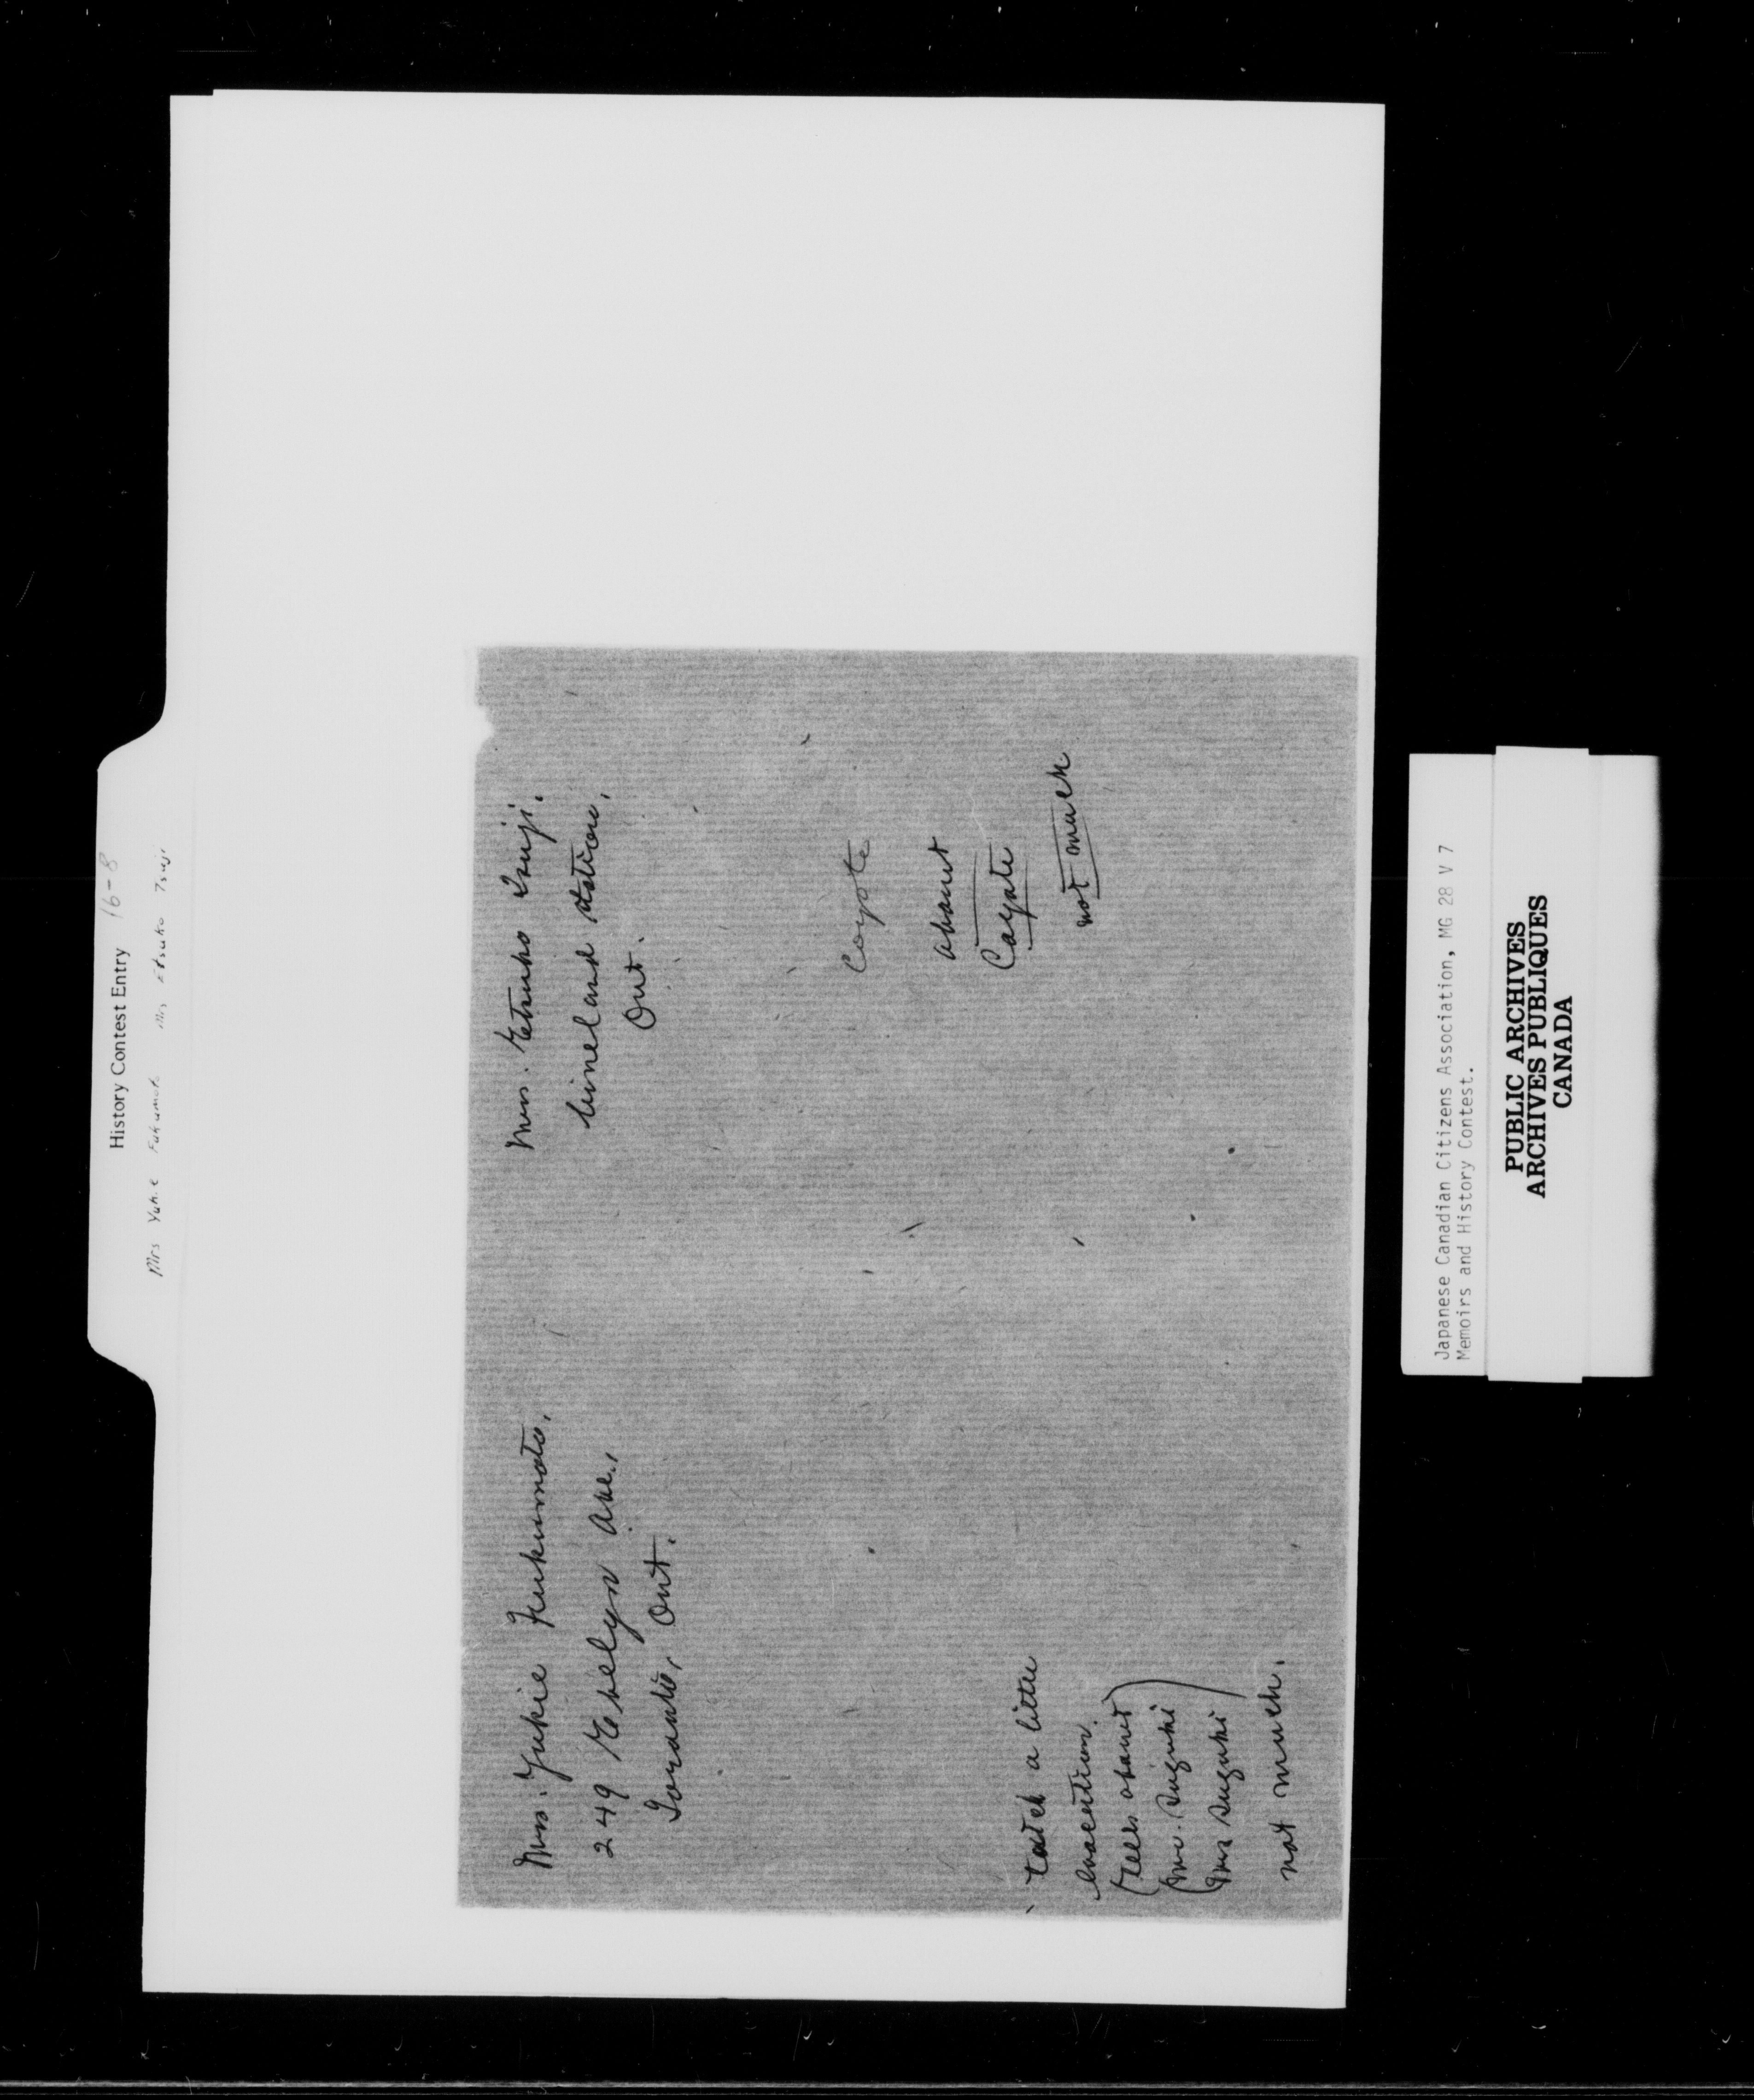 History Contest Entry 16-8
Mrs Yukie Fukumoto Mrs Etsuko Tsuji
Mrs. Yukie Fukumoto,
249 Evelyn Ave.,
Toronto, Ont.
Mrs. Etsuko Tsuji.
Vineland Station,
Ont.
Coyote
about
Coyote
not much
a little
evacuation.
(Tells about)
(Mr. Suzuki
(Mrs Suzuki)
not much.
Japanese Canadian Citizens Association, MG 28 V 7
Memoirs and History Contest.
PUBLIC ARCHIVES
ARCHIVES PUBLIQUES
CANADA